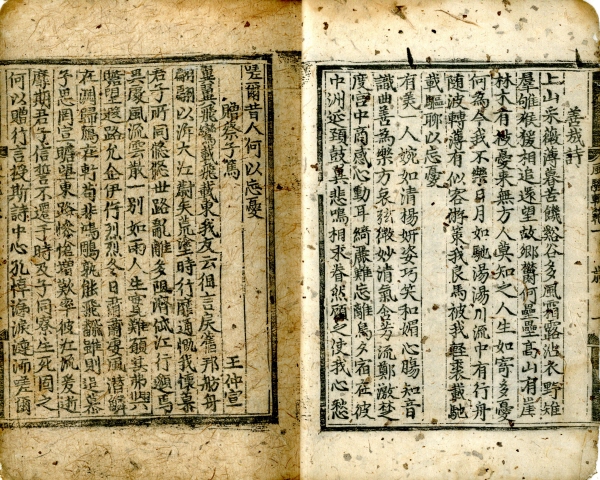 善哉詩
上山采薇薄暮苦饑谿谷多風霜露沾衣野雉
羣雊猴猿相追還望故鄉鬱何壘壘高山有崖
林木有枝憂來無方人莫知之人生如寄多憂
何為今我不樂日月如馳湯湯川流中有行舟
隨波轉薄有似客游策我良馬被我輕裘載馳
載驅聊以忘憂
有美一人婉如清揚妍姿巧笑和媚心腸知音
識曲善為樂方哀弦微妙清氣含芳流鄭激楚
度宮中商感心動耳綺麗難忘離鳥夕宿在彼
中洲延頸鼓翼悲鳴相求眷然顧之使我心愁
嗟爾昔人何以忘憂
贈蔡子篤 王仲宣
翼翼飛鸞載飛載東我友云徂言戾舊邦舫舟
翩翩以泝大江蔚矣荒塗時行靡通慨我懷慕
君子所同悠悠世路亂離多阻濟岱江行邈焉
異處風流雲散一別如雨人生實難願其弗與
瞻望遐路允企伊佇烈烈冬日肅肅淒風潛鱗
在淵歸鴈在軒苟非鴻鵰孰能飛飜雖則追慕
予思罔宣瞻望東路慘愴增歎率彼江流爰逝
靡期君子信誓不遷于時及子同寮生死固之
何以贈行言授斯詩中心孔悼涕淚漣洏嗟爾